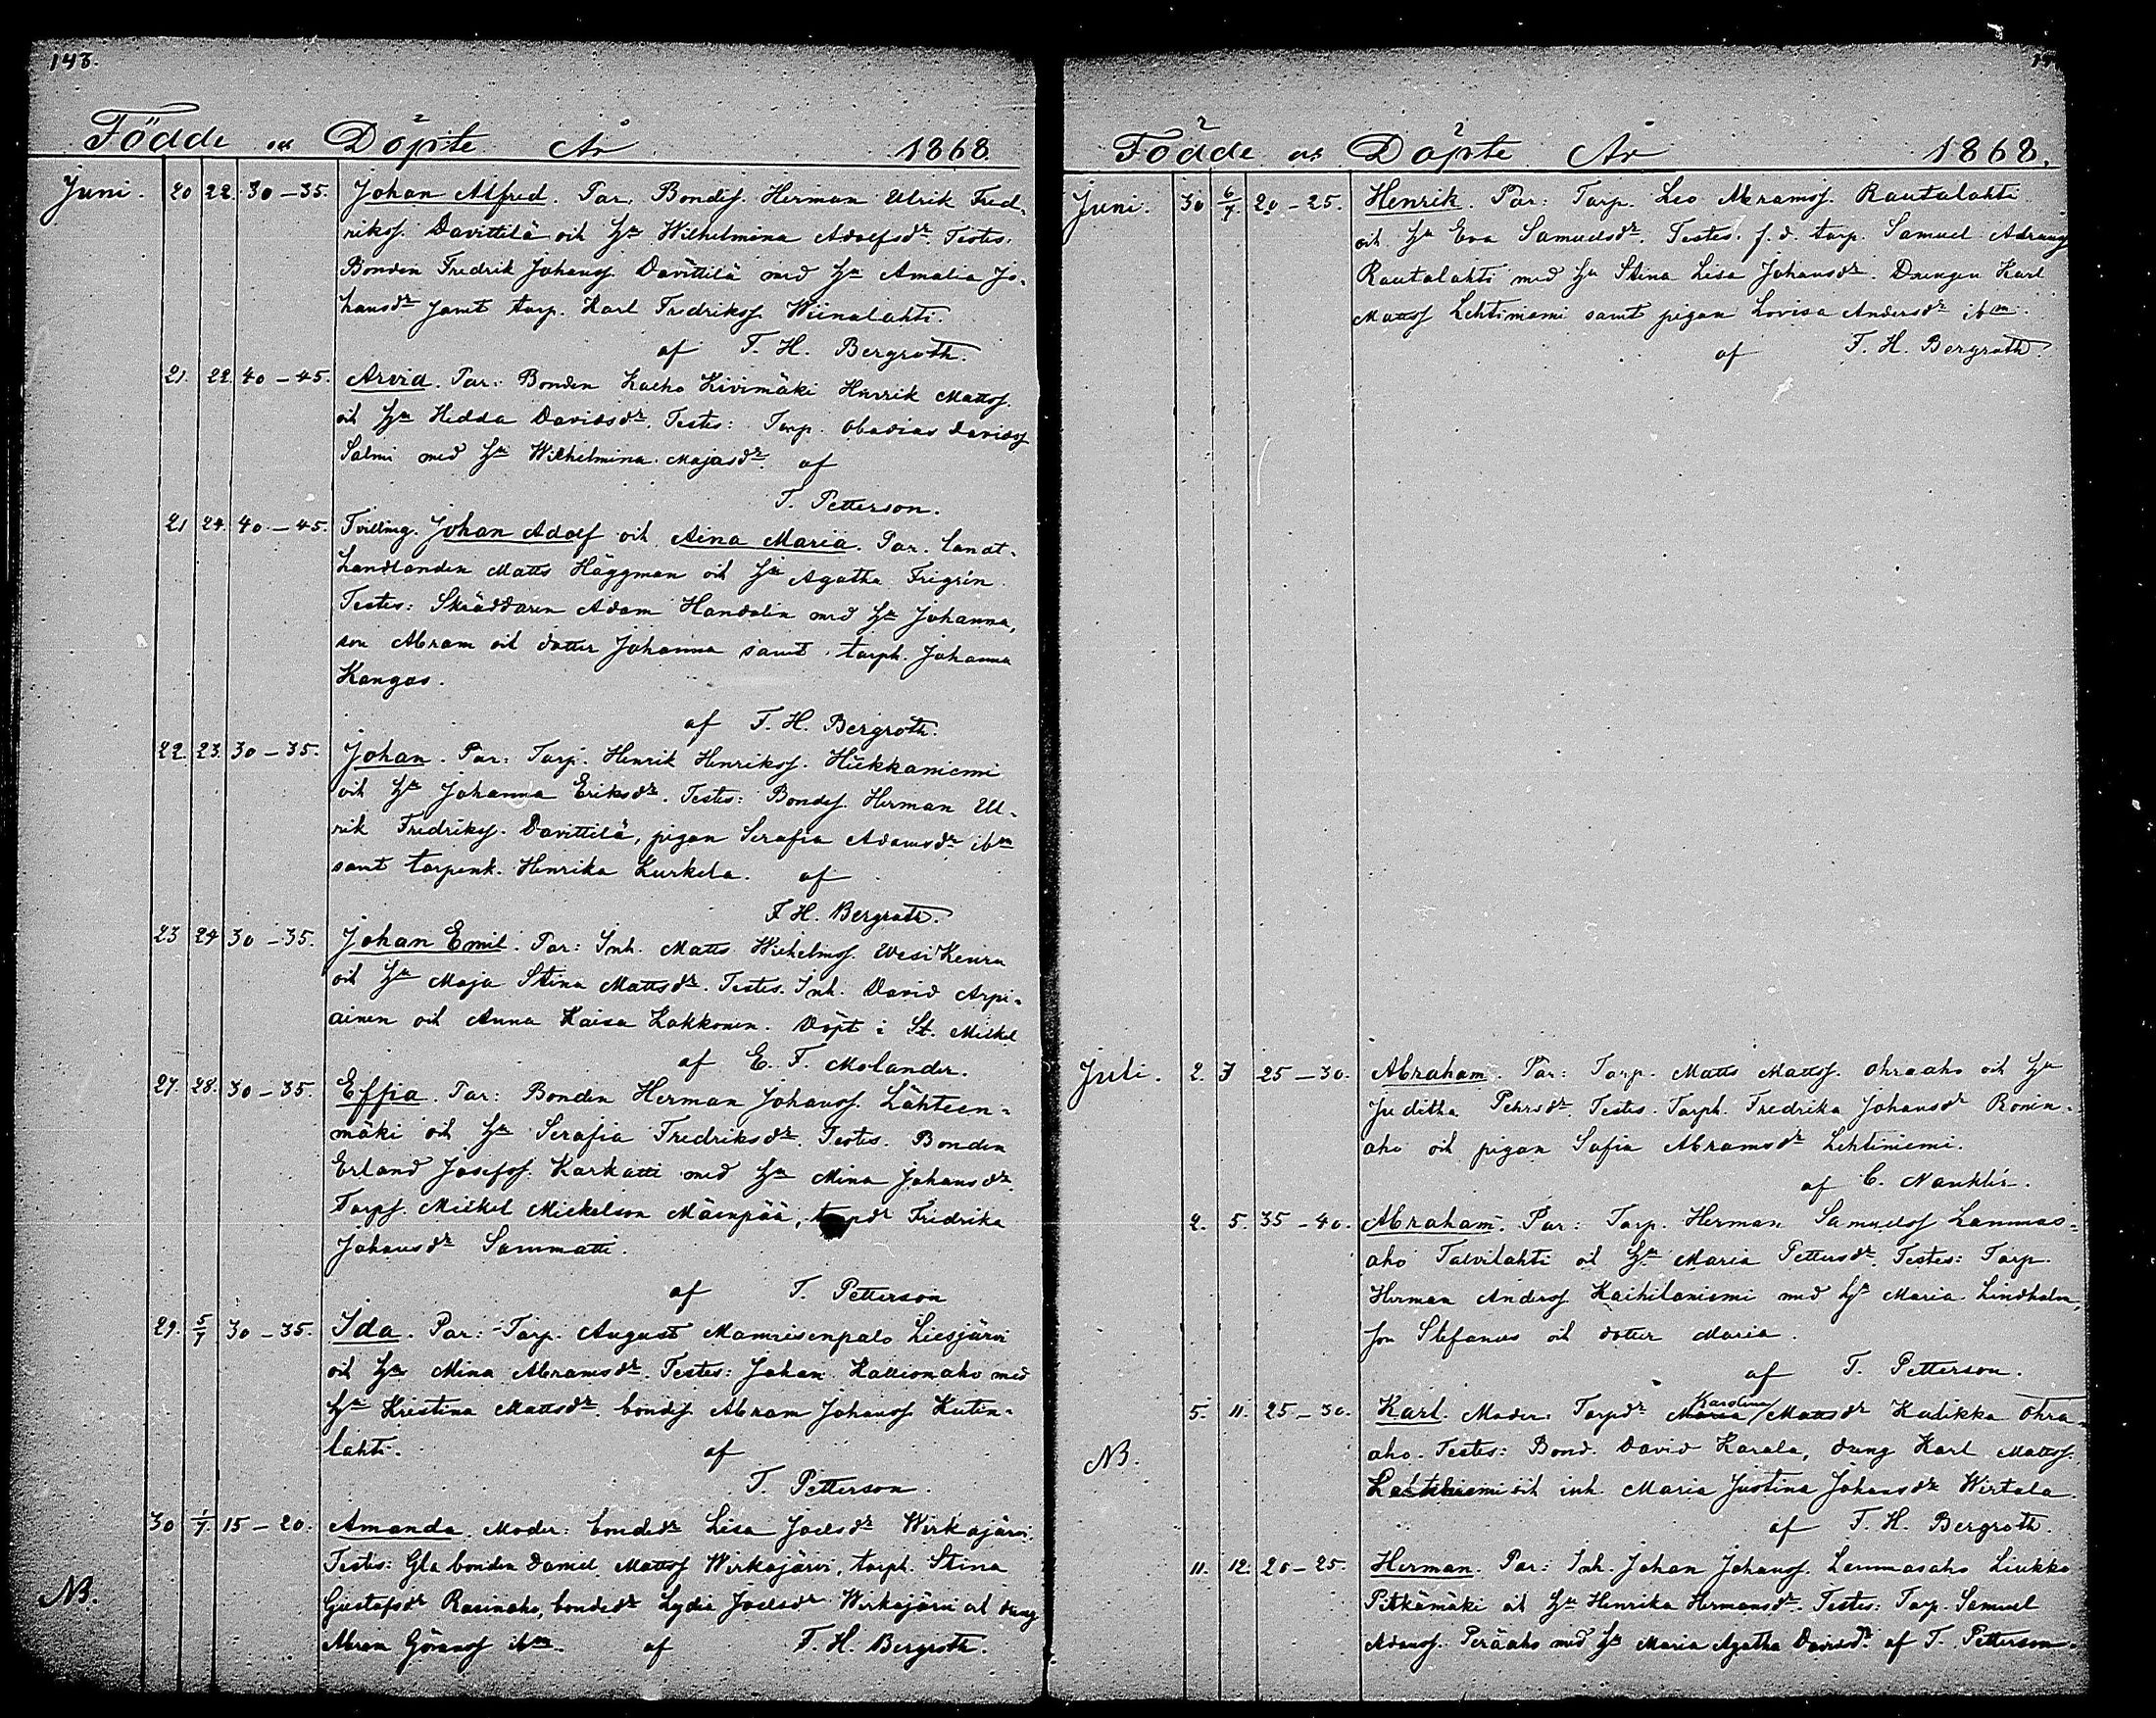 143.
Födde och Döpte År 1868.
Juni. 20 22 30-35. Johan Alfred. Par. Bondes. Herman Ulrik Fred-
rikss. Davittilä och Hu Wilhelmina Adolfsdr. Testes:
Bonden Fredrik Johanss. Davittilä med Hu Amalia Jo-
hansdr samt torp. Karl Fredrikss Wiinalahti.
af F. H. Bergroth.
21. 22 40-45. Arvid. Par: Bonden Kivimäki Henrik Mattss.
och Hu Hedda Davidsdr. Testes: Torp. Obadias Davidss
Salmi med Hu Wilhelmina Majasdr. af
T. Petterson.
21 24. 40-45. Tvilling. Johan Adolf och Aina Maria. Par. Landt-
handlanden Matts Häggman och Hu Agatha Frigrén.
Testes: Skräddaren Adam Handolin med Hu Johanna,
son Abram och dotter Johanna samt torph. Johanna
Kangas.
af F. H. Bergroth.
22. 23. 30-35. Johan. Par: Torp. Henrik Henrikss. Hiekkaniemi
och Hu Johanna Eriksdr. Testes: Bondes. Herman Ul-
rik Fredrikss. Davittilä, pigan Serafia Adamsdr ibm
samt torpenk. Henrika Kurkela. af
F. H. Bergroth.
23 24 30-35. Johan Emil. Par: Inh. Matts Wilhelmss. Wesi Keuru
och Hu Maja Stina Mattsdr. Testes. Inh. David Arpi-
ainen och Anna Kaisa Lakkonen. Döpt i St. Mickel
af E. F. Molander.
27. 28. 30-35. Effia. Par: Bonden Herman Johanss. Lähteen-
mäki och Hu Serafia Fredriksdr. Testes. Bonden
Erland Josefss. Karkatti med Hu Mina Johansdr.
Torps. Mickel Mickelson Mäenpää, torpdr Fredrika
Johansdr Sammatti.
af T. Petterson
29. 5/7 30-35. Ida. Par: Torp. August Liesjärvi
och Hu Mina Abramsdr. Testes: Johan Kallionaho med
Hu Kristina Mattsdr. bondes. Abram Johanss Kutin-
lahti. af
T. Petterson.
30 1/7 15-20. Amanda. Moder: bondedr Lisa Joelsdr Wirkajärvi.
Testes: Gla bonden Daniel Mattss Wirkajärvi, torph. Stina
NB. Gustafsdr Rasinaho, bondedr Lydia Joelsdr Wirkajärvi och dräng
Abram Göranss ibm. af F. H. Bergroth.
Födde och Döpte År 1868.
Juni. 30 6/7. 20-25. Henrik. Par: Torp. Leo Abramss. Rautalahti
och Hu Eva Samuelsdr. Testes. f.d. torp. Samuel
Rautalahti med Hu Stina Lisa Johansdr. Drengen Karl
Mattss Lehtiniemi samt pigan Lovisa Andersdr ibm.
af F. H. Bergroth.
Juli. 2. 7 25-30. Abraham. Par: Torp. Matts Mattss. Ohraaho och Hu
Juditha Pehrsdr. Testes. Torph. Fredrika Johansdr Ronin-
aho och pigan Sofia Abramsdr Lehtiniemi.
af C. Nanklér.
2. 5. 35-40. Abraham. Par: Torp. Herman Samuelss Lammas-
aho Talvilahti och Hu Maria Pettersdr. Testes: Torp.
Herman Anderss. Kaihilaniemi med Hu Maria Lindholm,
son Stefanus och dotter Maria.
af T. Petterson.
5. 11. 25-30. Karl. Moder: Torpdr Maria Karolina Mattsdr Kulikka Ohra-
NB. aho. Testes: Bond. David Karala, dreng Karl Mattss.
Lehtiniemi och inh. Maria Justina Johansdr Wirtala
af F. H. Bergroth.
11. 12. 20-25. Herman. Par: Inh. Johan Johanss. Lammasaho Liukko
Pitkämäki och Hu Henrika Hermansdr. Testes: Torp. Samuel
Adamss. Peräaho med Hu Maria Agatha Davidsdr. af T. Petterson.